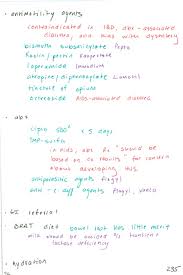 • antimotility agents
contraindicated in IBD, abx-associated
diarrhea, and kids with dysentery
bismuth subsalicylate Pepto
Kaolin/pectin Kaopectate
loperamide Immodium
atropine/diphenoxylate Lomotil
tincture of opium
octreotide AIDS-associated diarrhea
• abx
cipro 500 < 5 days
TMP-sulfa
in kids, abx Rx should be
based on cx results - for concern
about developing HUS
antiparasitic agents Flagyl
anti-C diff agents Flagyl, vanco
• GI referral
BRAT diet bowel rest has little merit
milk should be avoided 2/2 transient
lactose deficiency
• hydration
235